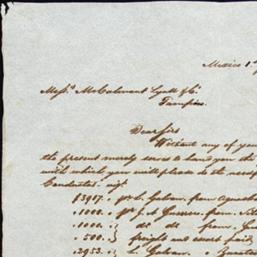 Mexico 1
Mess.s McCalmont Lyall & Co.
Tampico.
Dear Sirs
Without any of your
the present merely serves to hand you the
with which you will please do the
Conductas. viz.
$3917. pr L. Galvan, from
" 1000. " pr J. A Guerrero from.
" 1000. " do do from.
" 500. " freight and escort paid
" 2953. " L. Galvan.